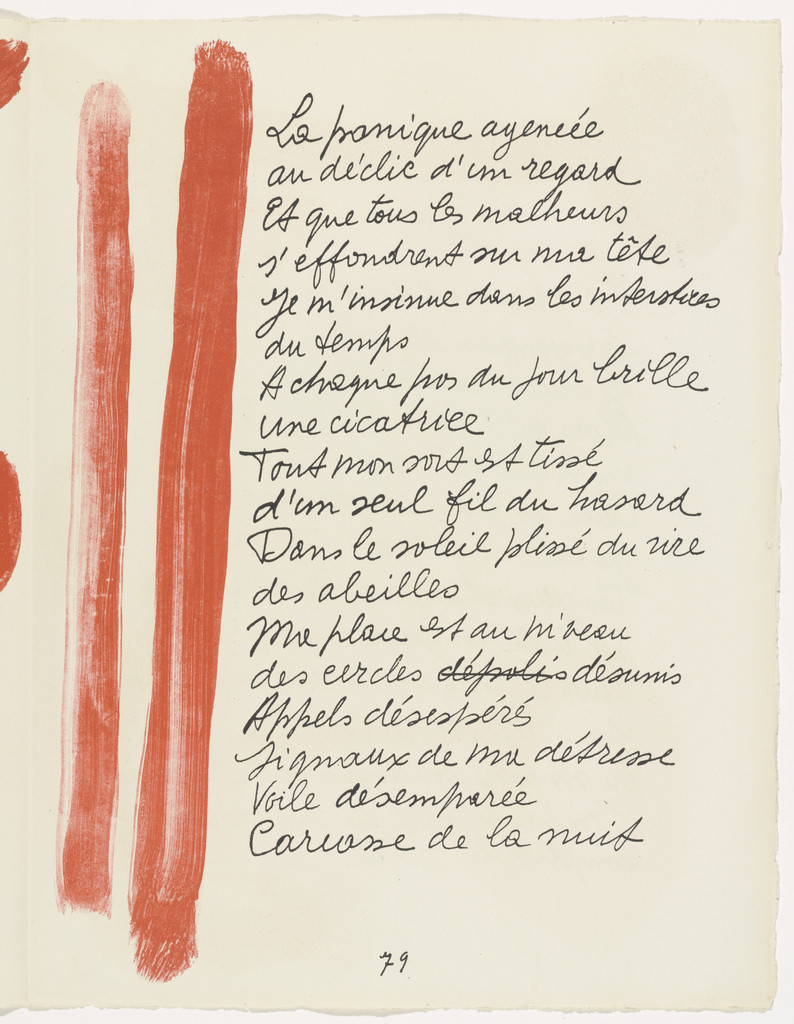 La panique agencée
au déclic d'un regard
Et que tous les malheurs
s'effondrent sur ma tête
Je m'insinue dans les interstices
du temps
A chaque pas du jour brille
une cicatrice
Tout mon sort est tissé
d'un seul fil du hasard
Dans le soleil plissé du rire
des abeilles
Ma place est au niveau
des cercles dépolis désunis
Appels désespérés
Signaux de ma détresse
Voile désemparée
Carcasse de la nuit
79